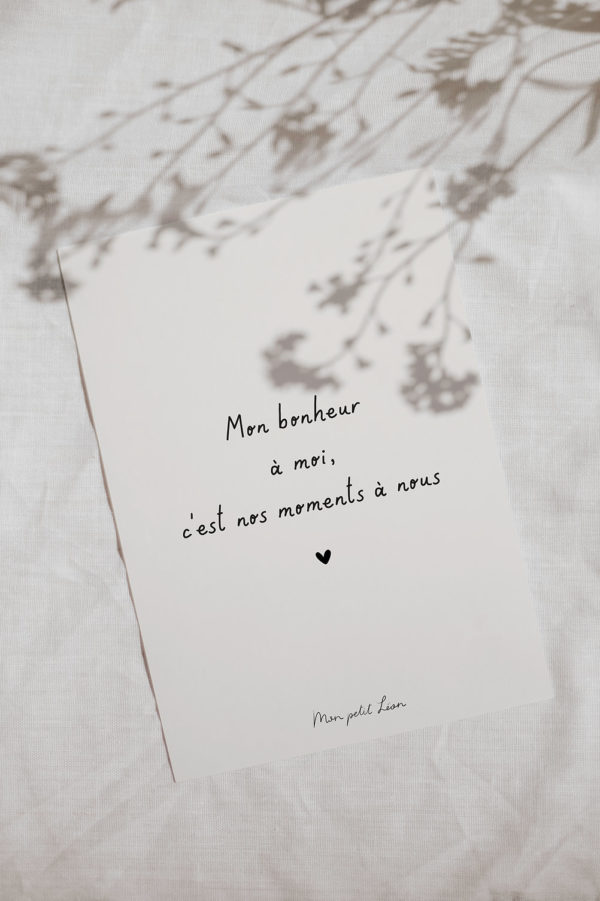 Mon bonheur
à moi,
c'est nos moments à nous
Mon petit Léon